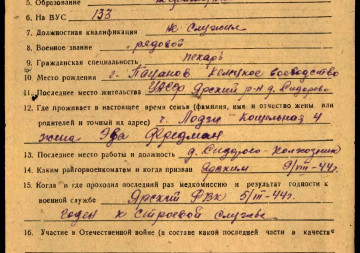 5. Образование
6. На ВУС 133
7. Должностная квалификация не служил
8. Военное звание рядовой
9. Гражданская специальность пекарь
10. Место рождения г. Келецкое воеводство
11. Последнее место жительства УАССР Ярский р-н д. Сидорово
12. Где проживает в настоящее время семья (фамилия, имя и отчество жены или
родителей и точный их адрес) г. Лодзь Кошельная 4
жена Эва Фредман
13. Последнее место работы и должность д. Сидорово-Колхозник
14. Каким райгорвоенкоматом и когда призван Ярским 9/VIII-44г.
15. Когда и где проходил последний раз медкомиссию и результат годности к
военной службе Ярский РВК 5/VIII-44г.
Годен к строевой службе
16. Участие в Отечественной войне (в составе какой последней части в качеств